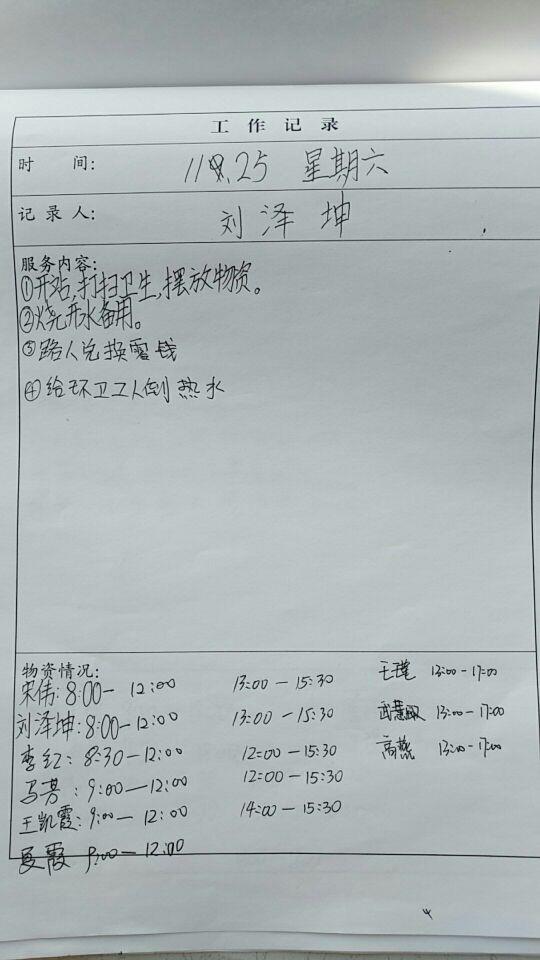 工作记录
时 间: 11.25 星期六
记录人: 刘泽坤
服务内容:
①开站,打扫卫生,摆放物资。
②烧开水备用。
③路人兑换零钱
④给环卫工人倒热水
物资情况:
宋伟:8:00-12:00 13:00-15:30 王瑾 13:00-17:00
刘泽坤:8:00-12:00 13:00-15:30 13:00-17:00
李红:8:30-12:00 12:00-15:30 高燕 13:00-17:00
马芳:9:00-12:00 12:00-15:30
王凯霞:9:00-12:00 14:00-15:30
夏霞 9:00-12:00
4